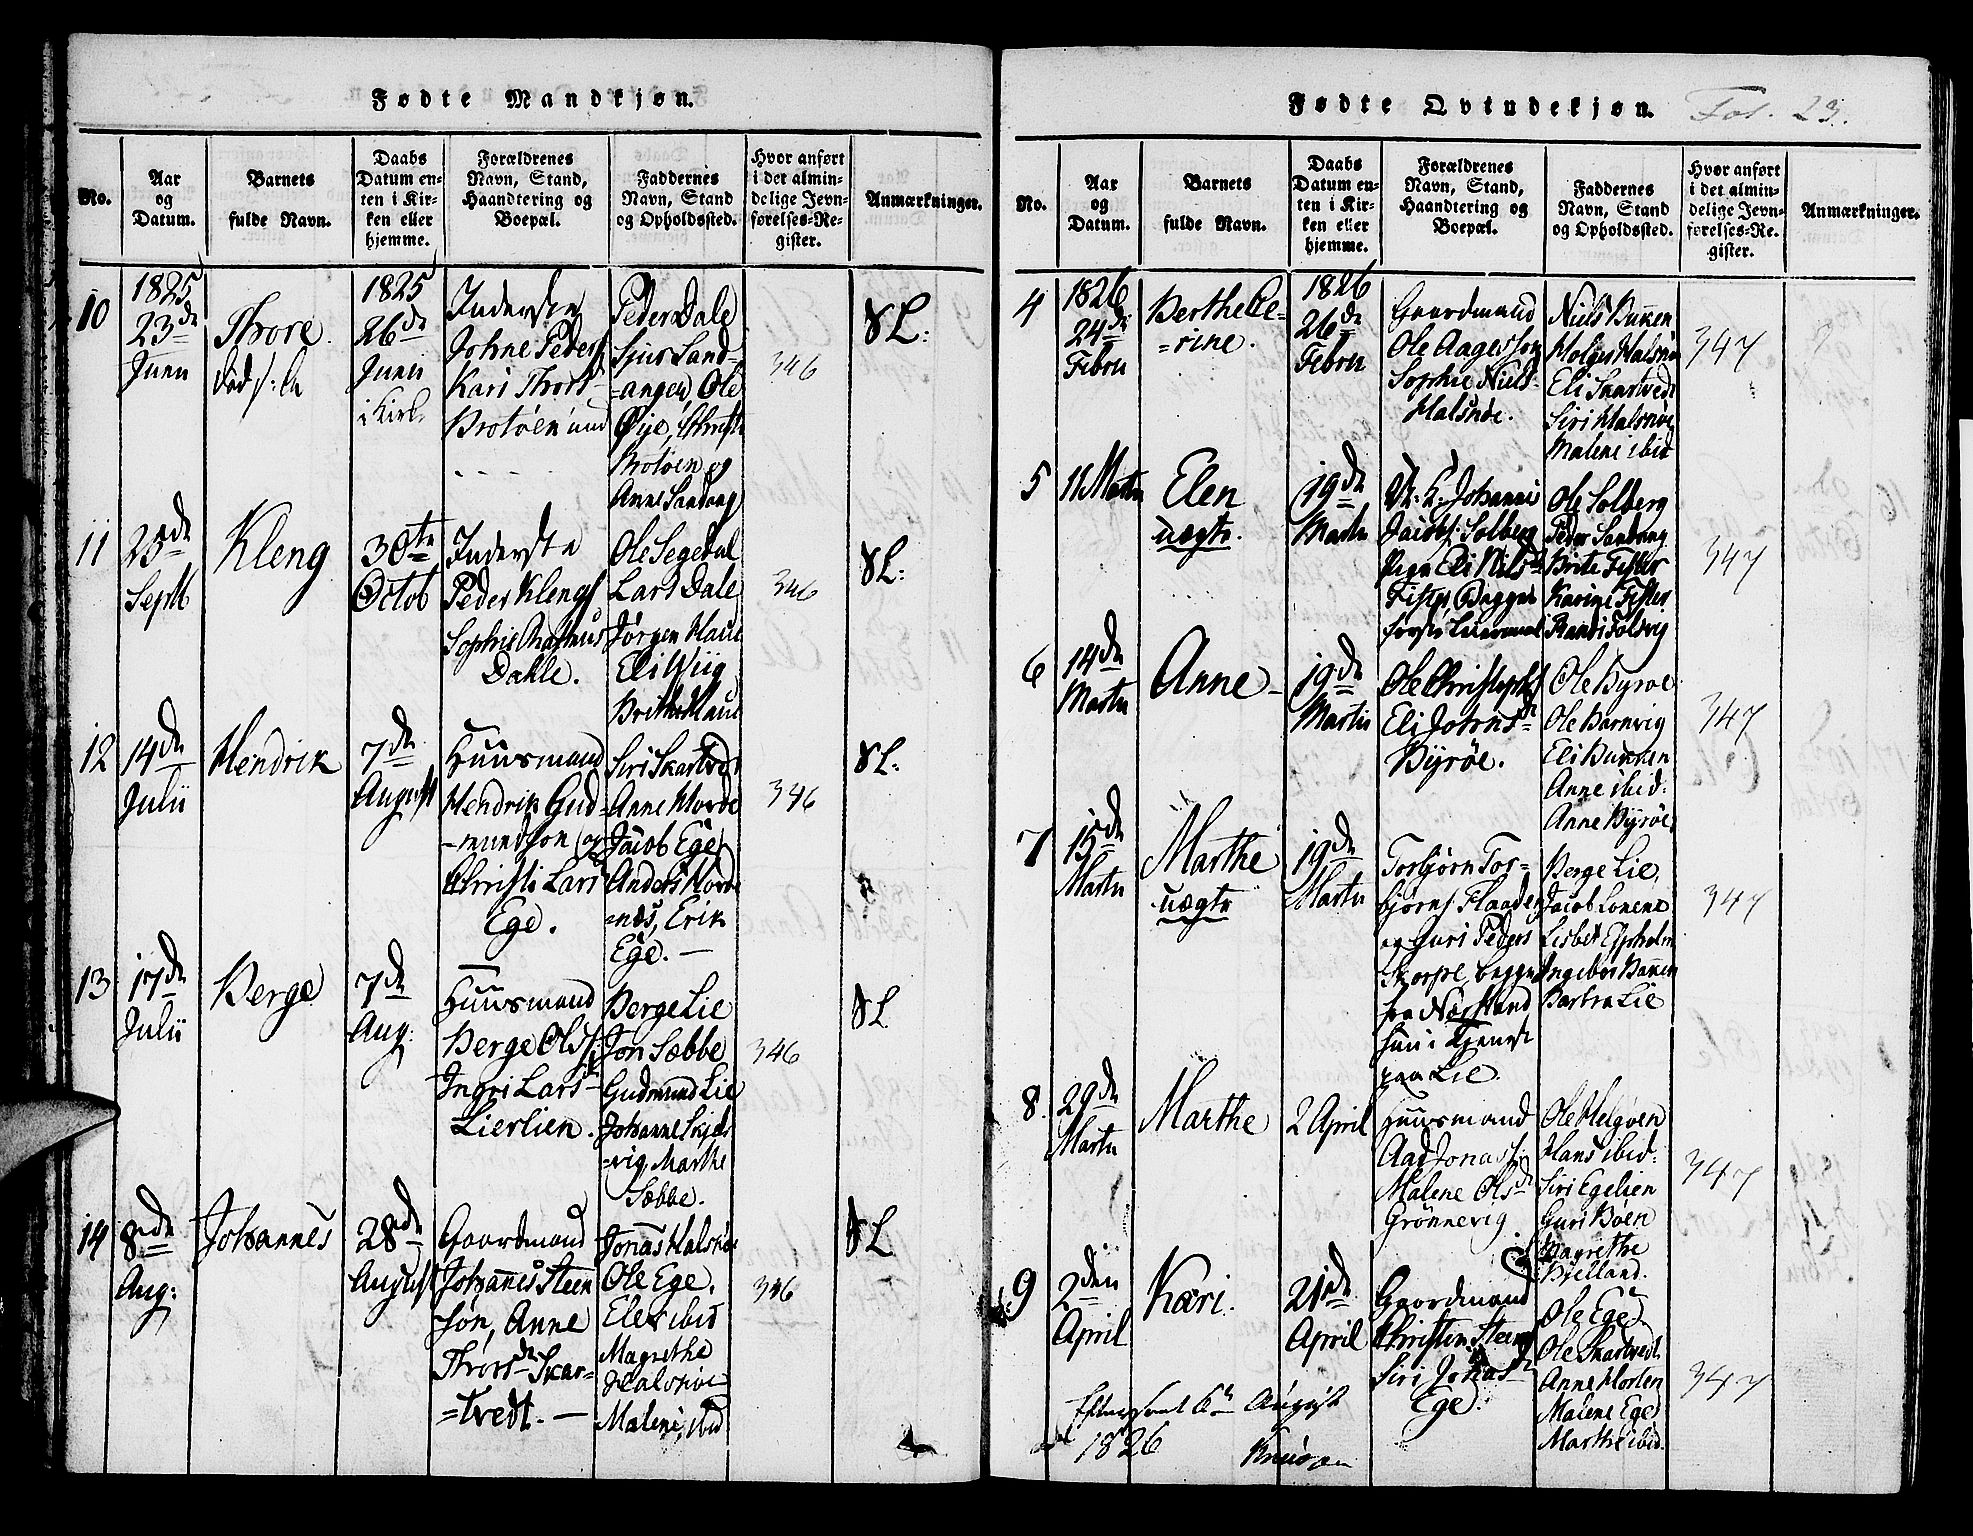 Fødte Mandkjøn.
No.
Aar
og
Datum.
Barnets
fulde Navn.
Daabs
Datum en-
ten i Kir-
ken eller
hjemme.
Forældrenes
Navn, Stand,
Haandtering og
Boepæl.
Faddernes
Navn, Stand
og Opholdssted.
Hvor anført
i det almin-
delige Jevn-
førelses-Re-
gister.
Anmærkninger.
10
1825
23de
Juni
Thore
1825
26de
Juni
i Kirk.
Inderste
Johne Peders
Kari Thors
Brotøen
Peder Dale
Sjur Sand-
=angen, Ole
Øije, Christi
Brotøen og
Anne Sandang
346
11
25de
Septb
Kleng
30te
Octob
Inderste
Peder Klengs
Sophie Rasmus
Dahle.
Ole Segedal
Lars Dale
Jørgen Haue
Eli Wiig
Brithe Haue
346
12
14de
Julii
Hendrik
7de
August
Huusmand
Hendrik Gud-
-mundson og
Christi Lars
Ege.
Siri Skartvedt
Anne Horde
Jacob Ege
Anders Horde
=næs, Erik
Ege. -
346
13
17de
Julii
Berge
7de
Aug:
Huusmand
Berge Ols
Ingri Lars
Lierlien.
Berge Lie
Jon Sæbbe
Gudmund Lie
Johanne
=vig, Marthe
Sæbbe.
346
14
8de
Aug:
Johannes
28de
August
Gaardmand
Johannes Steen
søn, Anne
Thors Skar=
=tvedt. -
Jonas Halsnøe
Ole Ege.
Elen ibid
Magrethe
Halsnøe
Malene, ibid
346
Fødte Qvindekjøn. Fol. 23.
No.
Aar
og
Datum.
Barnets
fulde Navn.
Daabs
Datum en-
ten i Kir-
ken eller
hjemme.
Forældrenes
Navn, Stand,
Haandtering og
Boepæl.
Faddernes
Navn, Stand
og Opholdssted.
Hvor anført
i det almin-
delige Jevn-
førelses-Re-
gister.
Anmærkninger.
4
1826
24de
Febru
Berthe Ce=
=rine.
1826
26de
Febru
Gaardmand
Ole Aagesson
Sophie Niels
Halsnøe.
Niels Bukken
Holger Halsnøe
Eli Skartvedt
Siri Halsnøe
Malene ibid
347
5
11 Martii
Elen
uægte.
19de
Martii
Johannes
Jacobs: Solberg
Pige Eli Nils
Fister, Begges
første Leiermaal
Ole Solberg
Peder Sandang
Brite Fister
Karine Fister
Randi Folsvig
347
6
14de
Martii
Anne
19de
Martii
Ole Christophs
Eli Johns
Byrøe.
Ole Byrøe
Ole Barnvig
Eli Bukken
Anne ibid:
Anne Byrøe
347
7
15de
Martii
Marthe
uægte
19de
Martii
Torbjørn Tor=
bjørns Flaade
og Guri Peders
Skorpe, begge
fra Nærstrand
hun i Tjeneste
paa Lie.
Berge Lie,
Jacob Lonene
Lisbet Espholm
Ingebor Bakken
Barbra Lie
347
8.
29de
Martii
Marthe
2 April
Huusmand
Aad Jonas
Malene Ols
Grønnevig
Ole Helgøen
Hans ibid:
Siri Egelien
Guri Bøen
Magrethe
Bjelland.
347
9
2den
April
Kari.
21de
April
Gaardmand
Christen Steens
Siri Jonas
Ege.
Ole Ege
Ole Skartvedt.
Anne Horten
Malene Ege
Marthe ibid.
347
August
1826